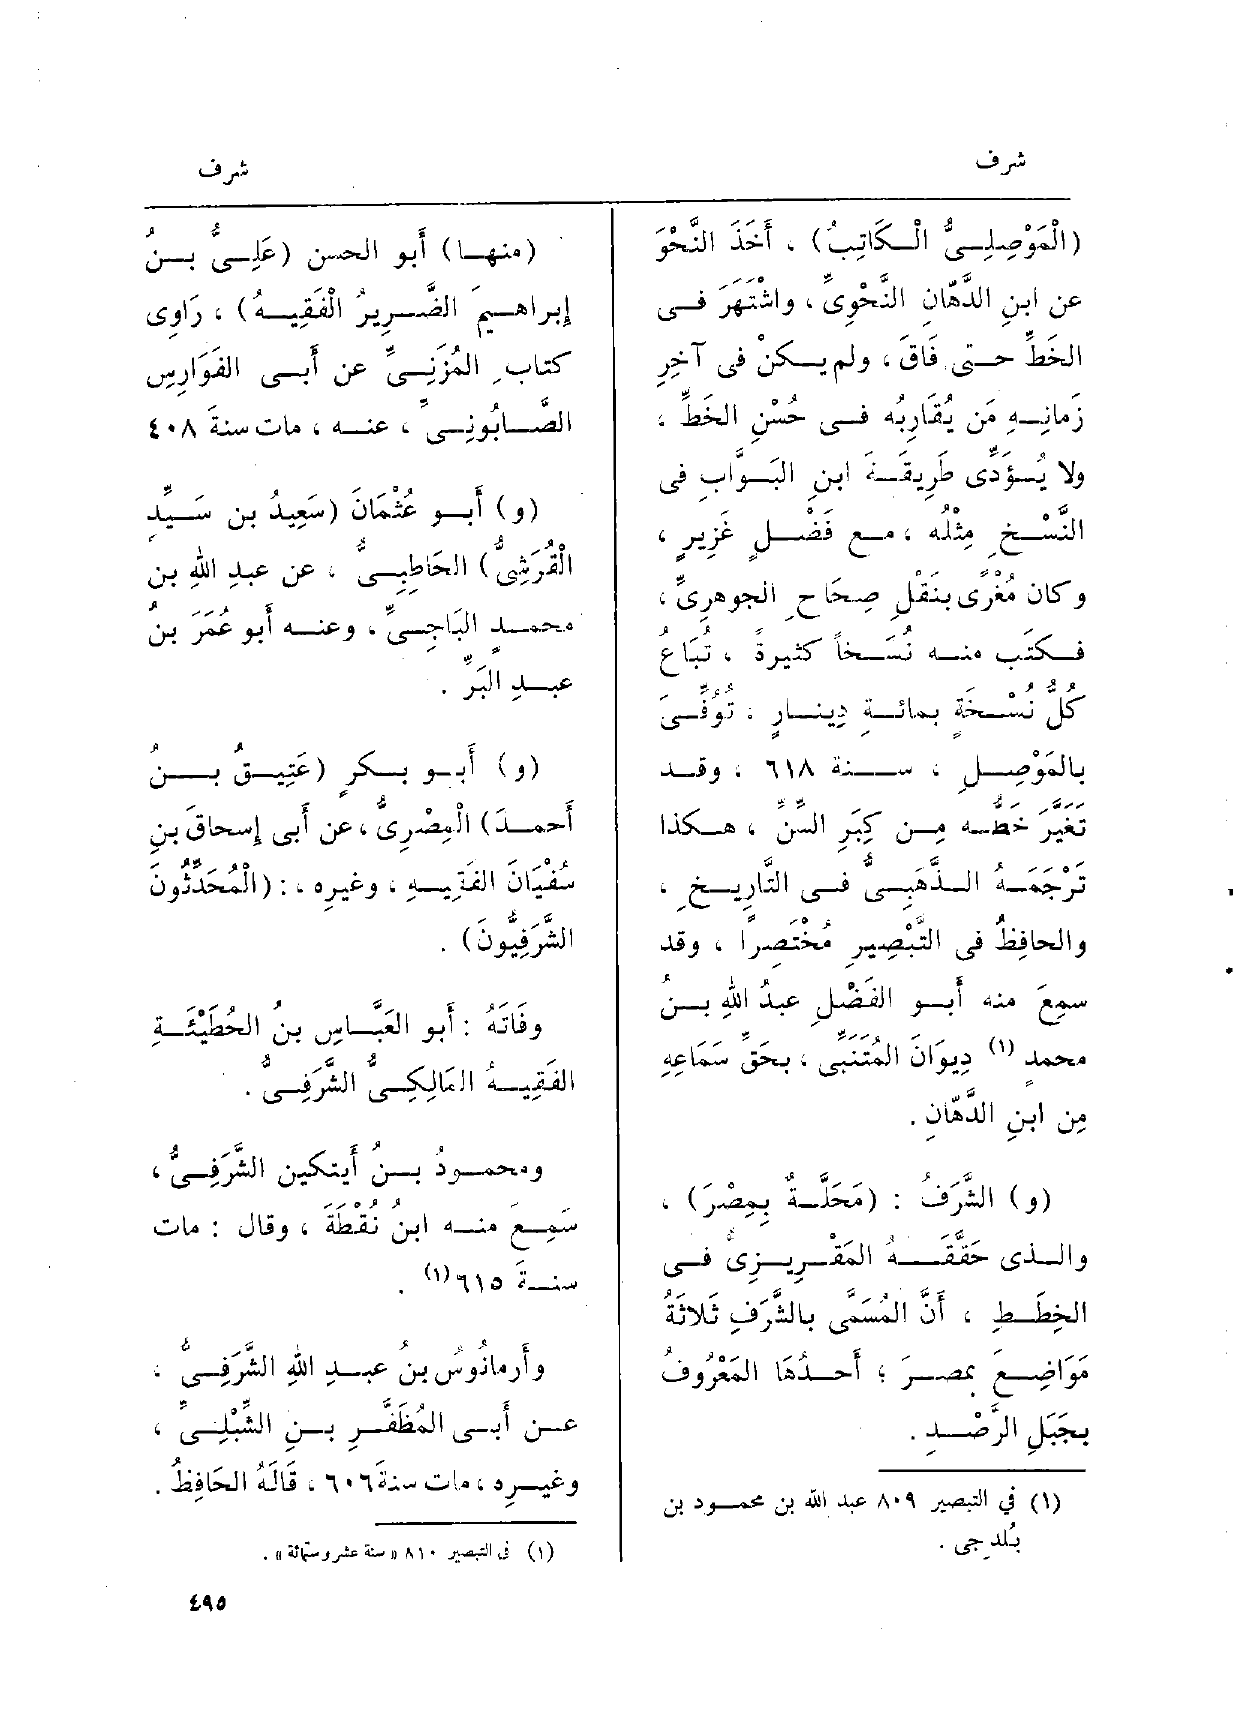 شرف
شرف
(الْمَوْصِلِىُّ الْكَاتِبُ) ، أَخَذَ النَّحْوَ
عن ابنِ الدَّهّانِ النَّحْوِىِّ ، واشْتَهَرَ فى
الخَطِّ حتى فَاقَ ، ولم يكنْ فى آخِرِ
زَمانِهِ مَن يُقَارِبُه فى حُسْنِ الخَطِّ ،
ولا يُؤَدِّى طَرِيقَةَ ابنِ البَوَّابِ فى
النَّسْخِ مِثْلُه ، مع فَضْلٍ غَزِيرٍ ،
وكان مُغْرًى بنَقْلِ صِحَاحِ الجوهرىِّ ،
فكتب منه نُسَخاً كثيرةً ، تُبَاعُ
كُلُّ نُسْخَةٍ بمائةِ دِينارٍ . تُوُفِّىَ
بالمَوْصِلِ ، سنة ٦١٨ ، وقد
تَغَيَّرَ خَطُّه مِن كِبَرِ السِّنِّ ، هكذا
تَرْجَمَهُ الذَّهَبِىُّ فى التَّارِيخِ ،
والحافِظُ فى التَّبْصِيرِ مُخْتَصِرًا ، وقد
سمِعَ منه أَبو الفَضْلِ عبدُ اللهِ بنُ
محمدٍ (١) دِيوَانَ المُتَنَبِّى ، بحَقِّ سَمَاعِهِ
مِن ابنِ الدَّهّانِ .
(و) الشَّرَفُ : (مَحَلَّةٌ بِمِصْرَ) ،
والذى حَقَّقَهُ المَقْرِيزىُّ فى
الخِطَطِ ، أَنَّ المُسَمَّى بالشَّرَفِ ثَلاثَةُ
مَوَاضِعَ بمصرَ ؛ أَحدُهَا المَعْرُوفُ
بجَبَلِ الرَّصْدِ .
(١) في التبصير ٨٠٩ عبد الله بن محمود بن
بُلدجى .
(منها) أَبو الحسن (عَلِىُّ بنُ
إبراهيم الضَّرِيرُ الْفَقِيهُ) ، رَاوِى
كتابِ المُزَنِىِّ عن أَبى الفَوَارِسِ
الصَّابُونِىِّ ، عنه ، مات سنةَ ٤٠٨
(و) أَبو عُثْمَانَ (سَعِيدُ بن سَيِّدٍ
الْقُرَشِىُّ) الحَاطِبِىُّ ، عن عبدِ اللهِ بن
محمدٍ البَاجِىِّ ، وعنه أَبو عُمَرَ بنُ
عبدِ البَرِّ .
(و) أَبو بكرٍ (عَتِيقُ بنُ
أَحمدَ) الْمِصْرِىُّ ، عن أَبى إسحاقَ بنِ
سُفْيَانَ الفَقِيهِ ، وغيرِه ، : (الْمُحَدِّثُونَ
الشَّرَفِيُّونَ) .
وفَاتَهُ : أَبو العَبَّاسِ بنُ الحُطَيْئَةِ
الفَقِيهُ المَالِكِىُّ الشَّرَفِىُّ .
ومحمودُ بنُ أَيتكين الشَّرَفِىُّ ،
سَمِعَ منه ابنُ نُقْطَةَ ، وقال : مات
سنةَ ٦١٥ (١) .
وأَرمانُوسُ بنُ عبدِ اللهِ الشَّرَفِىُّ ،
عن أَبى المُظَفَّرِ بنِ الشِّبْلِىِّ ،
وغيرِه ، مات سنة ٦٠٦ ، قَالَهُ الحَافِظُ .
(١) فى التبصير ٨١٠ « سنة عشر وستمائة » .
٤٩٥